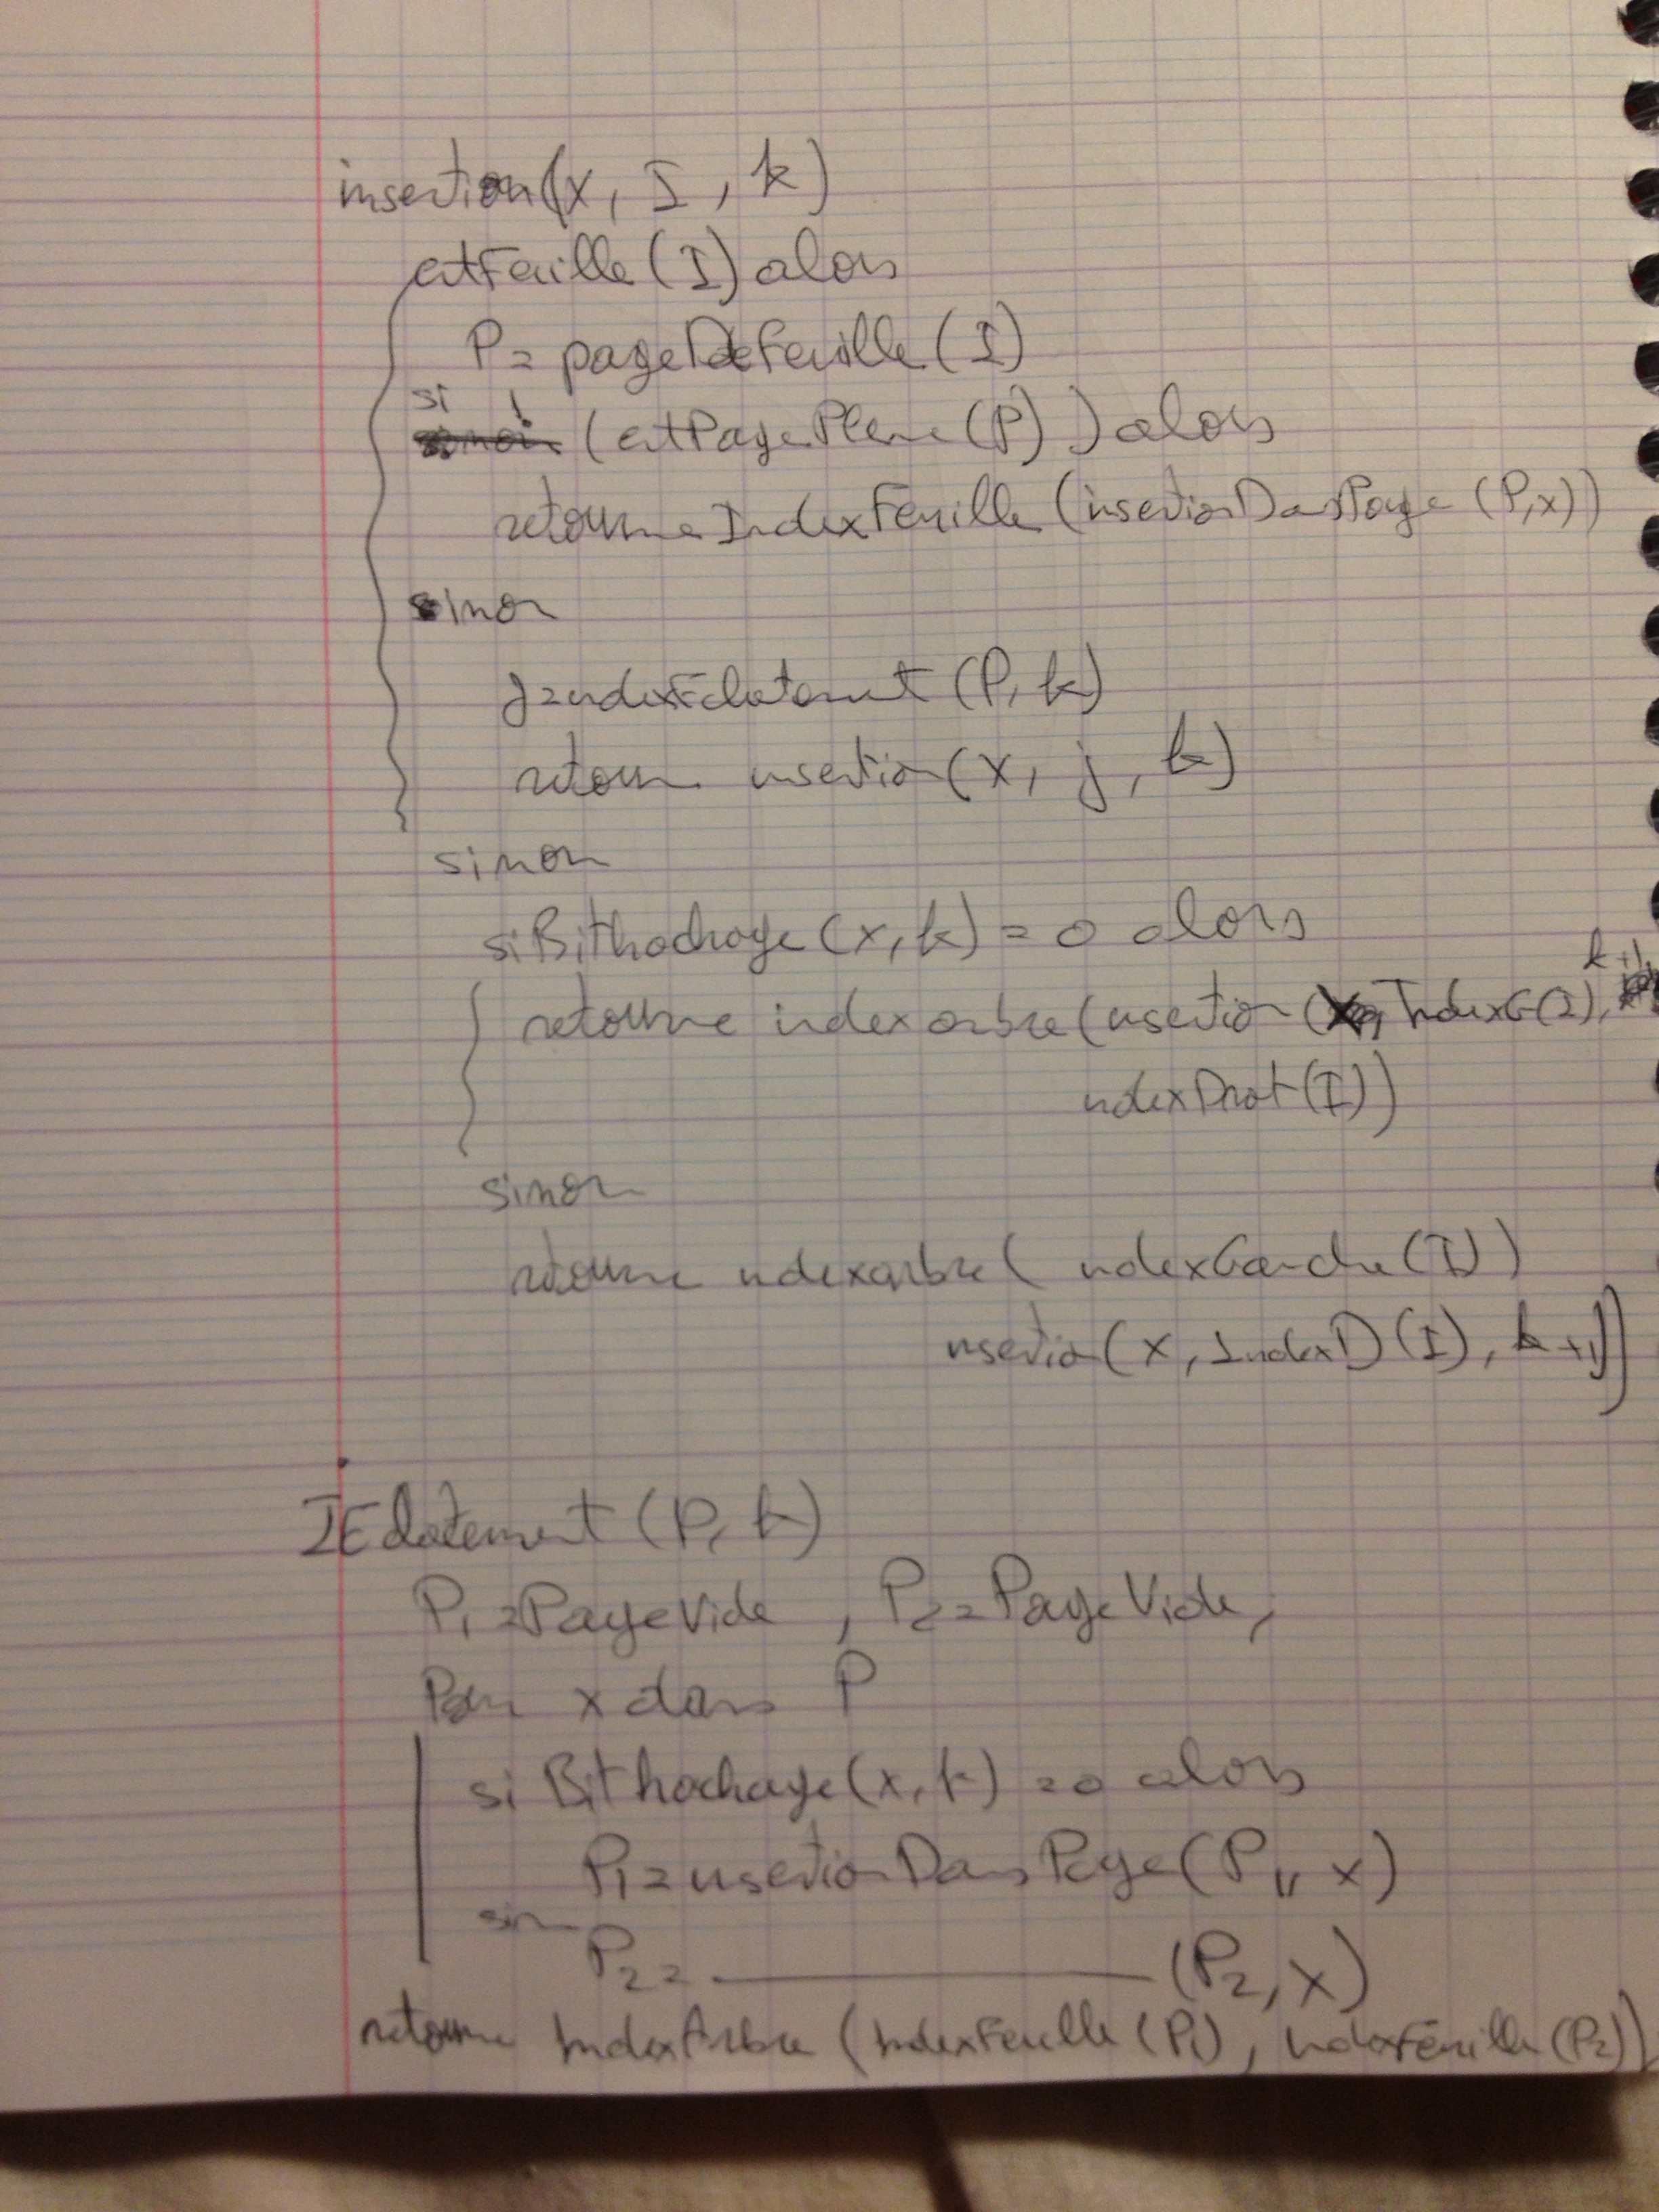 insertion(x, I, k)
estFeuille(I) alors
P = pageDeFeuille(I)
si ! (estPagePleine(P)) alors
retourne IndexFeuille(insertionDansPage(P,x))
sinon
j=indexEclatement(P,k)
retourne insertion(x, j, k)
sinon
si Bithachage(x,k) = 0 alors
retourne indexarbre(insertion(x, IndexG(I), k+1),
indexDroit(I))
sinon
retourne indexarbre( indexGauche(I)
insertion(x, IndexD(I), k+1))
IEclatement(P, k)
P1=PageVide , P2=PageVide,
Pour x dans P
si Bithachage(x,k) =0 alors
P1=insertionDansPage(P1, x)
sinon
P2= ———— (P2, x)
retourne IndexArbre (IndexFeuille(P1), IndexFeuille(P2))